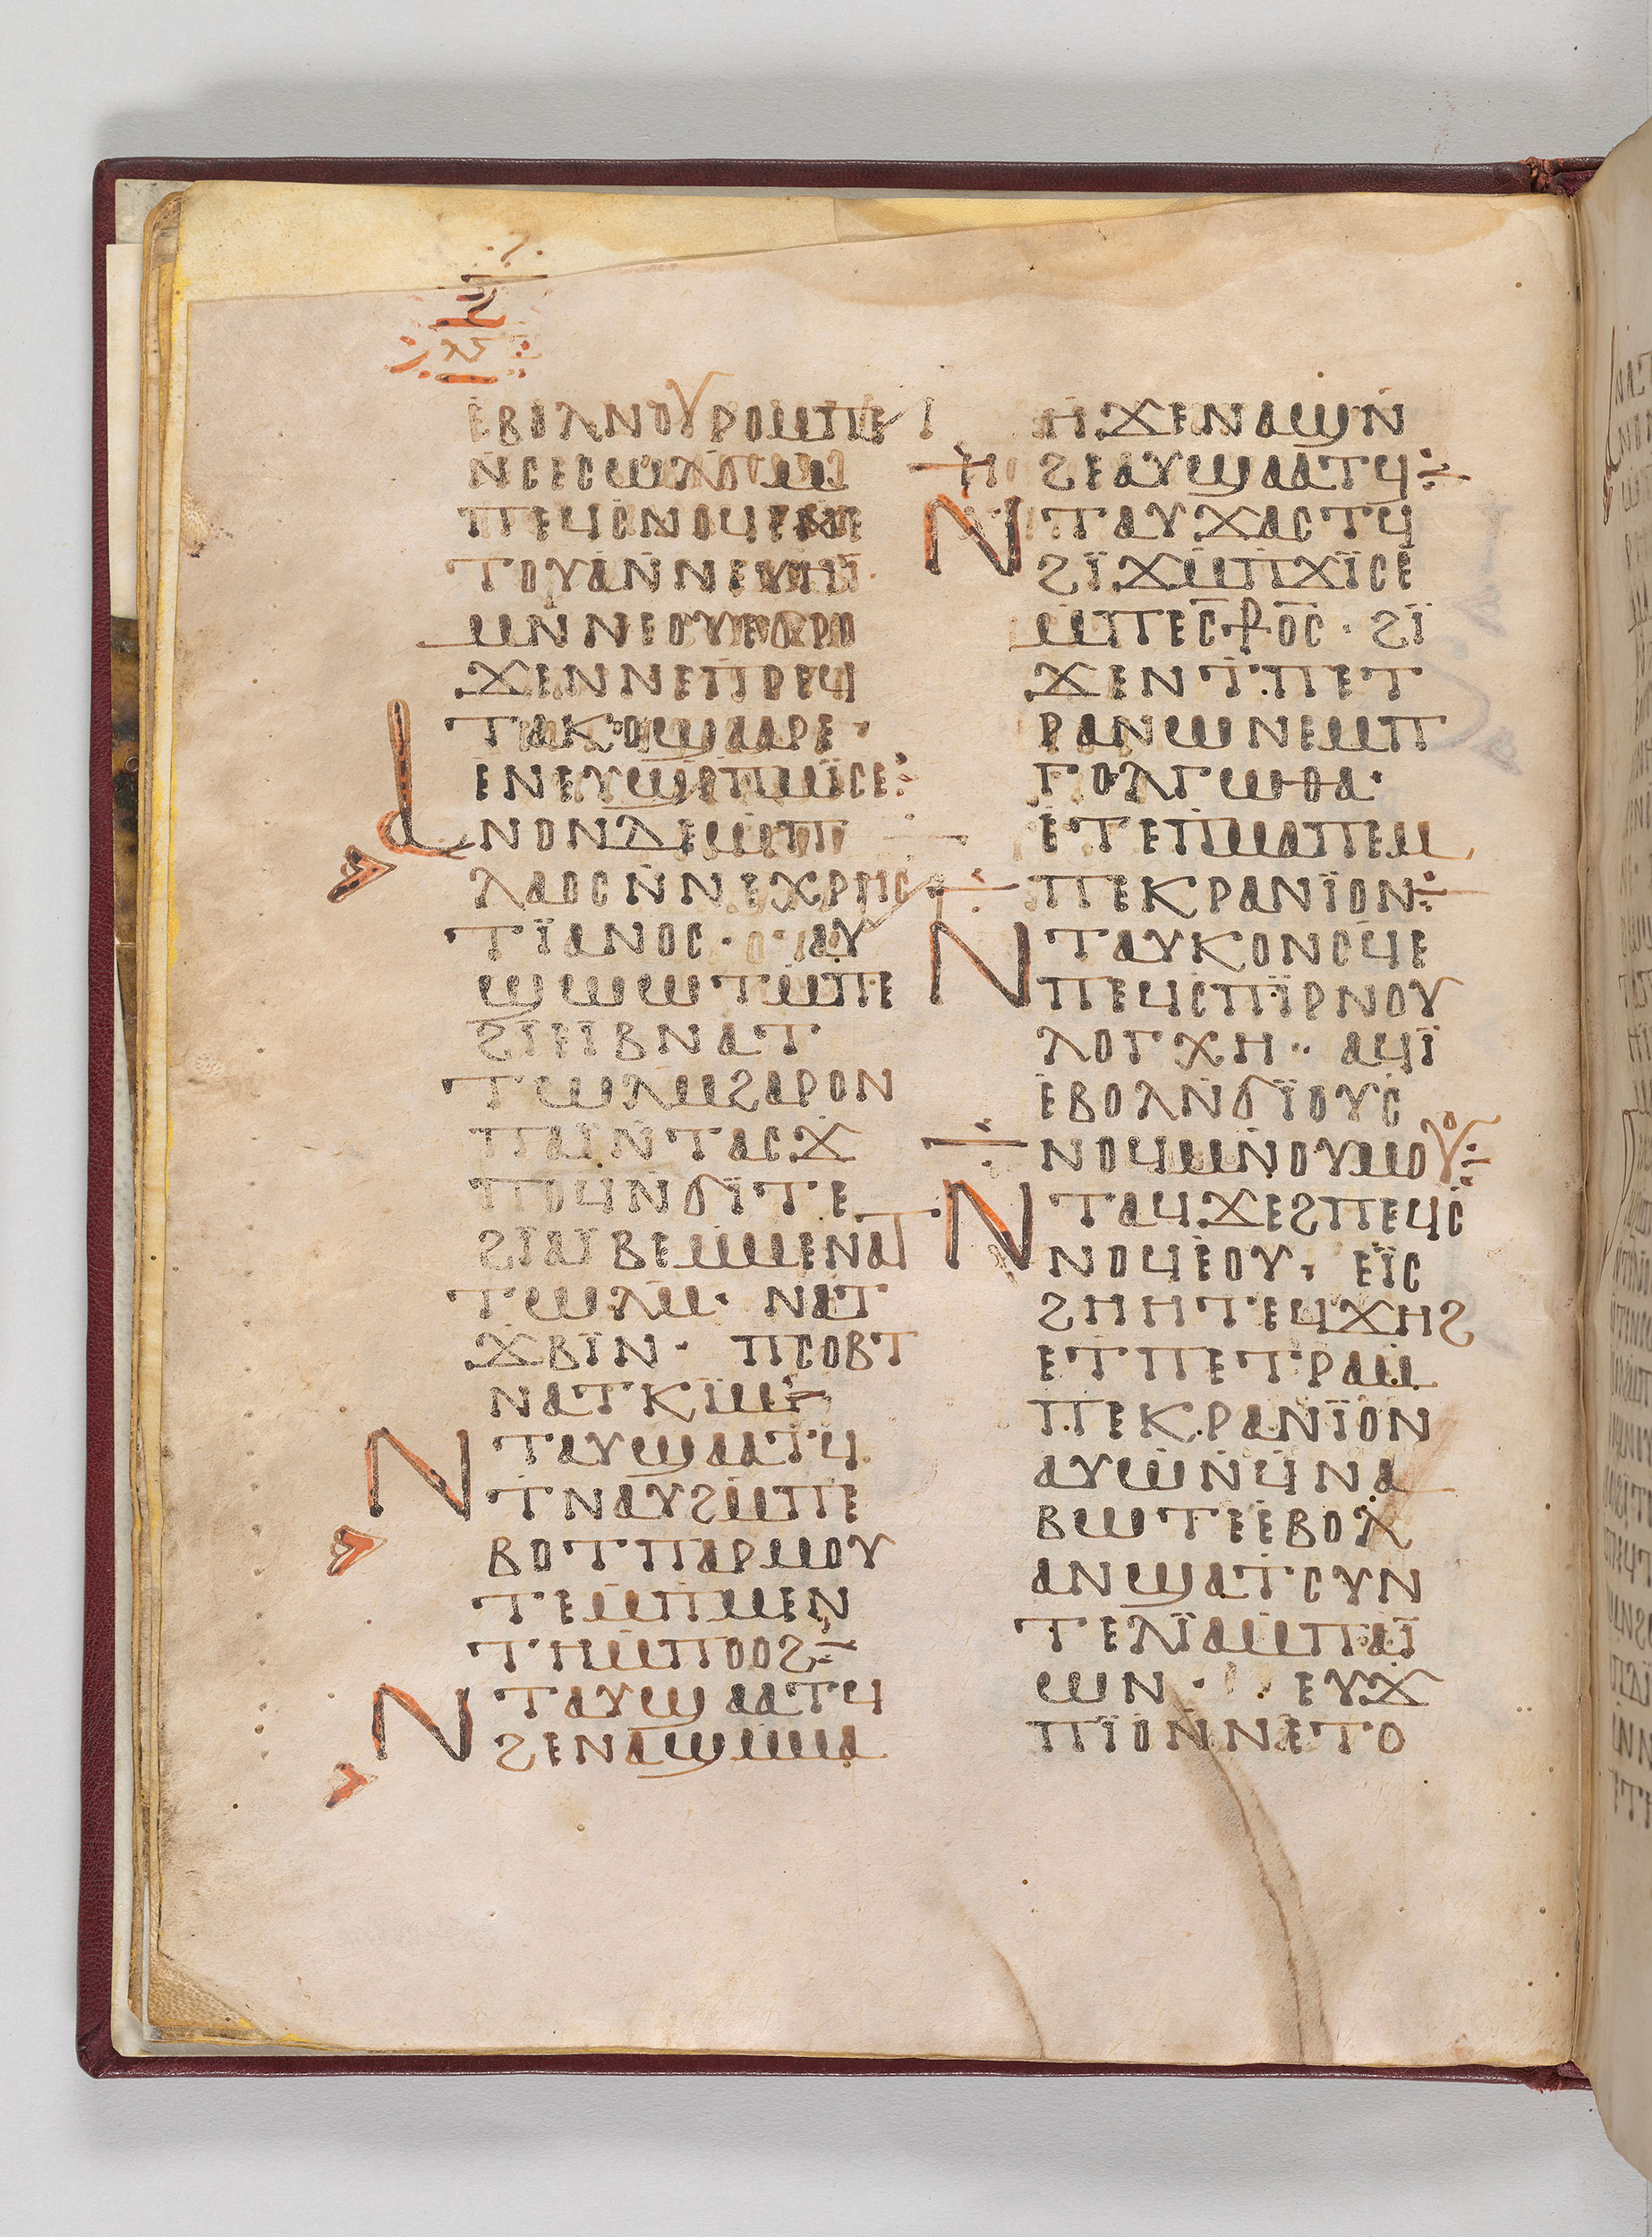 ⲉⲃⲟⲗⲛⲟⲩⲣⲟⲙⲡⲉⲓ
ⲛ̇ⲥⲉⲥⲱⲗϭⲙ
ⲡⲉϥⲥⲛⲟϥⲉϫⲉ
ⲧⲟⲩⲁⲛ̇ⲛⲉⲩⲏⲓ̈
ⲙⲛ̇ⲛⲉⲟⲩⲉϭⲣⲟ
ϫⲉⲛⲛⲉⲡⲣⲉϥ
ⲧⲁⲕⲟϣⲁⲁⲣⲉ
ⲉⲛⲉⲩϣⲣ̇ⲡⲙⲓ̈ⲥⲉ⁘
ⲁⲛⲟⲛⲇⲉⲙ̇ⲡ
ⲗⲁⲟⲥⲛ̇ⲛⲉⲭⲣⲏⲥ
ⲧⲓ̈ⲁⲛⲟⲥ· ⲁⲩ
ϣⲱⲱⲧⲙ̇ⲡⲉ
ϩⲓ̈ⲉⲓ̈ⲃⲛⲁⲧ
ⲧⲱⲗⲙϩⲁⲣⲟⲛ
ⲡⲁⲓ̈ⲛ̇ⲧⲁⲥϫ
ⲡⲟϥⲛ̇ϭⲓ̈ⲧⲉ
ϩⲓ̈ⲁⲓ̈ⲃⲉⲙⲙⲉⲛⲁⲧ
ⲧⲱⲗⲙ· ⲛⲁⲧ
ϫⲃⲓⲛ· ⲡⲥⲟⲃⲧ
ⲛⲁⲧⲕⲓⲙ⁘
ⲛⲧⲁⲩϣⲁⲁⲧϥ
ⲧⲛⲁⲩϩⲙ̇ⲡⲉ
ⲃⲟⲧⲡⲁⲣⲙⲟⲩ
ⲧⲉⲙ̇ⲡⲙⲉⲛ
ⲧⲏⲙ̇ⲡⲟⲟϩ⁘
ⲛⲧⲁⲩϣⲁⲁⲧϥ
ϩⲉⲛⲁϣⲙ̇ⲙⲁ
ⲏ̇ϫⲉⲛⲁϣⲛ̇
ϩⲉⲁⲩϣⲁⲁⲧϥ⁘
ⲛⲧⲁⲩϫⲁⲥⲧϥ
ϩⲓ̈ϫⲙ̇ⲡϫⲓ̈ⲥⲉ
ⲙ̇ⲡⲉⲥⳁⲟⲥ· ϩⲓ̈
ϫⲉⲛⲧ̇ⲡⲉⲧ
ⲣⲁⲛⲱⲛⲉⲙⲡ
ⲅⲟⲗⲅⲱⲑⲁ·
ⲉ̇ⲧⲉⲡⲙⲁⲡⲉⲙ
ⲡⲉⲕⲣⲁⲛⲓ̈ⲟⲛ⁘
ⲛⲧⲁⲩⲕⲟⲛⲥϥⲉ
ⲡⲉϥⲥⲡⲓ̈ⲣⲛⲟⲩ
ⲗⲟⲅⲭⲏ·· ⲁϥⲓ̈
ⲉ̇ⲃⲟⲗⲛ̇ϭⲓ̈ⲟⲩⲥ
ⲛⲟϥⲙⲛ̇ⲟⲩⲙⲟⲟⲩ⁘
ⲛⲧⲁϥϫⲉϩⲡⲉϥⲥ
ⲛⲟϥⲉ̇ⲟⲩ, ⲉⲓ̈ⲥ
ϩⲏⲏⲧⲉϥϫⲏϩ
ⲉⲧⲡⲉⲧⲣⲁⲙ̇
ⲡⲉⲕⲣⲁⲛⲓ̈ⲟⲛ
ⲁⲩⲱⲛ̇ϥⲛⲁ
ⲃⲱⲧⲉⲉ̇ⲃⲟⲗ
ⲁⲛϣⲁⲧⲥⲩⲛ
ⲧⲉⲗⲓ̈ⲁⲙ̇ⲡⲁⲓ̈
ⲱⲛ· ⲉⲩϫ
ⲡⲓ̈ⲟⲛ̇ⲛⲉⲧⲟ